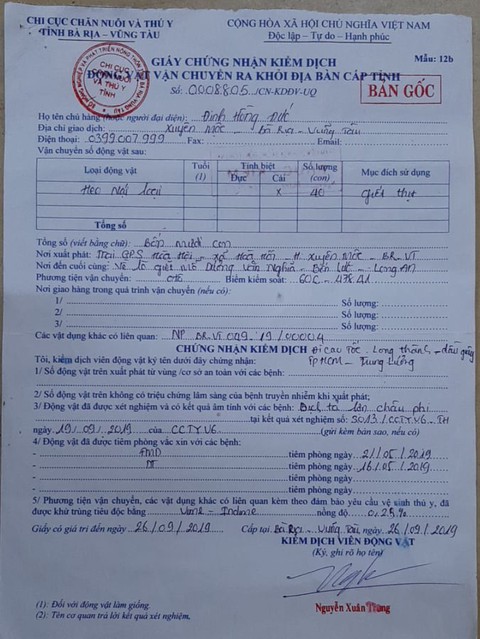 CHI CỤC CHĂN NUÔI VÀ THÚ Y
TỈNH BÀ RỊA – VŨNG TÀU
CỘNG HÒA XÃ HỘI CHỦ NGHĨA VIỆT NAM
Độc lập – Tự do – Hạnh phúc
Mẫu: 12b
GIẤY CHỨNG NHẬN KIỂM DỊCH
ĐỘNG VẬT VẬN CHUYỂN RA KHỎI ĐỊA BÀN CẤP TỈNH
Số: 0008805/CN-KDĐV-UQ
BẢN GỐC
CHI CỤC
VÀ THÚ Y
TỈNH
Họ tên chủ hàng (hoặc người đại diện): Đinh Hồng Đức
Địa chỉ giao dịch: Xuyên Mộc – Bà Rịa – Vũng Tàu
Điện thoại: 0399007999 Fax: Email:
Vận chuyển số động vật sau:
Loại động vật Tuổi (1) Tính biệt Đực Cái Số lượng (con) Mục đích sử dụng
Heo Nái loại x 40 giết thịt
Tổng số
Tổng số (viết bằng chữ): Bốn mươi con
Nơi xuất phát: Trại GPS Hòa Hội – xã Hòa Hội – H. Xuyên Mộc – BR-VT
Nơi đến cuối cùng: Về lò giết mổ Dương Văn Nghĩa – Bến Lức – Long An
Phương tiện vận chuyển: ôtô Biển kiểm soát: 60C – 478.41
Nơi giao hàng trong quá trình vận chuyển (nếu có):
1/ Số lượng:
2/ Số lượng:
3/ Số lượng:
Các vật dụng khác có liên quan: NP BR.VT 049-19/00004
CHỨNG NHẬN KIỂM DỊCH Đi cao tốc Long Thành – dầu giây
Tôi, kiểm dịch viên động vật ký tên dưới đây chứng nhận: TP HCM – Trung Lương
1/ Số động vật trên xuất phát từ vùng/cơ sở an toàn với các bệnh:
2/ Số động vật trên không có triệu chứng lâm sàng của bệnh truyền nhiễm khi xuất phát;
3/ Động vật đã được xét nghiệm và có kết quả âm tính với các bệnh: Dịch tả lợn châu phi
tại kết quả xét nghiệm số: 5013/CCTYV6-TH
ngày 19/09/2019 của CCTYV6 (gửi kèm bản sao, nếu có)
4/ Động vật đã được tiêm phòng vắc xin với các bệnh:
- FMD tiêm phòng ngày 21/05/2019
- DT tiêm phòng ngày 16/05/2019
- tiêm phòng ngày
- tiêm phòng ngày
5/ Phương tiện vận chuyển, các vật dụng khác có liên quan kèm theo đảm bảo yêu cầu vệ sinh thú y, đã
được khử trùng tiêu độc bằng nồng độ 0,25%
Giấy có giá trị đến ngày 26/09/2019 Cấp tại Bà Rịa – Vũng Tàu, ngày 26/09/2019
KIỂM DỊCH VIÊN ĐỘNG VẬT
(Ký, ghi rõ họ tên)
Nguyễn Xuân Trung
(1): Đối với động vật làm giống.
(2): Tên cơ quan trả lời kết quả xét nghiệm.